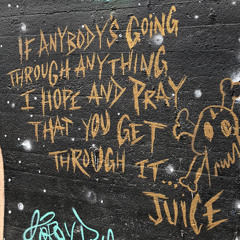 IF ANYBODY'S GOING
THROUGH ANYTHING
I HOPE AND PRAY
THAT YOU GET
THROUGH IT...
JUICE